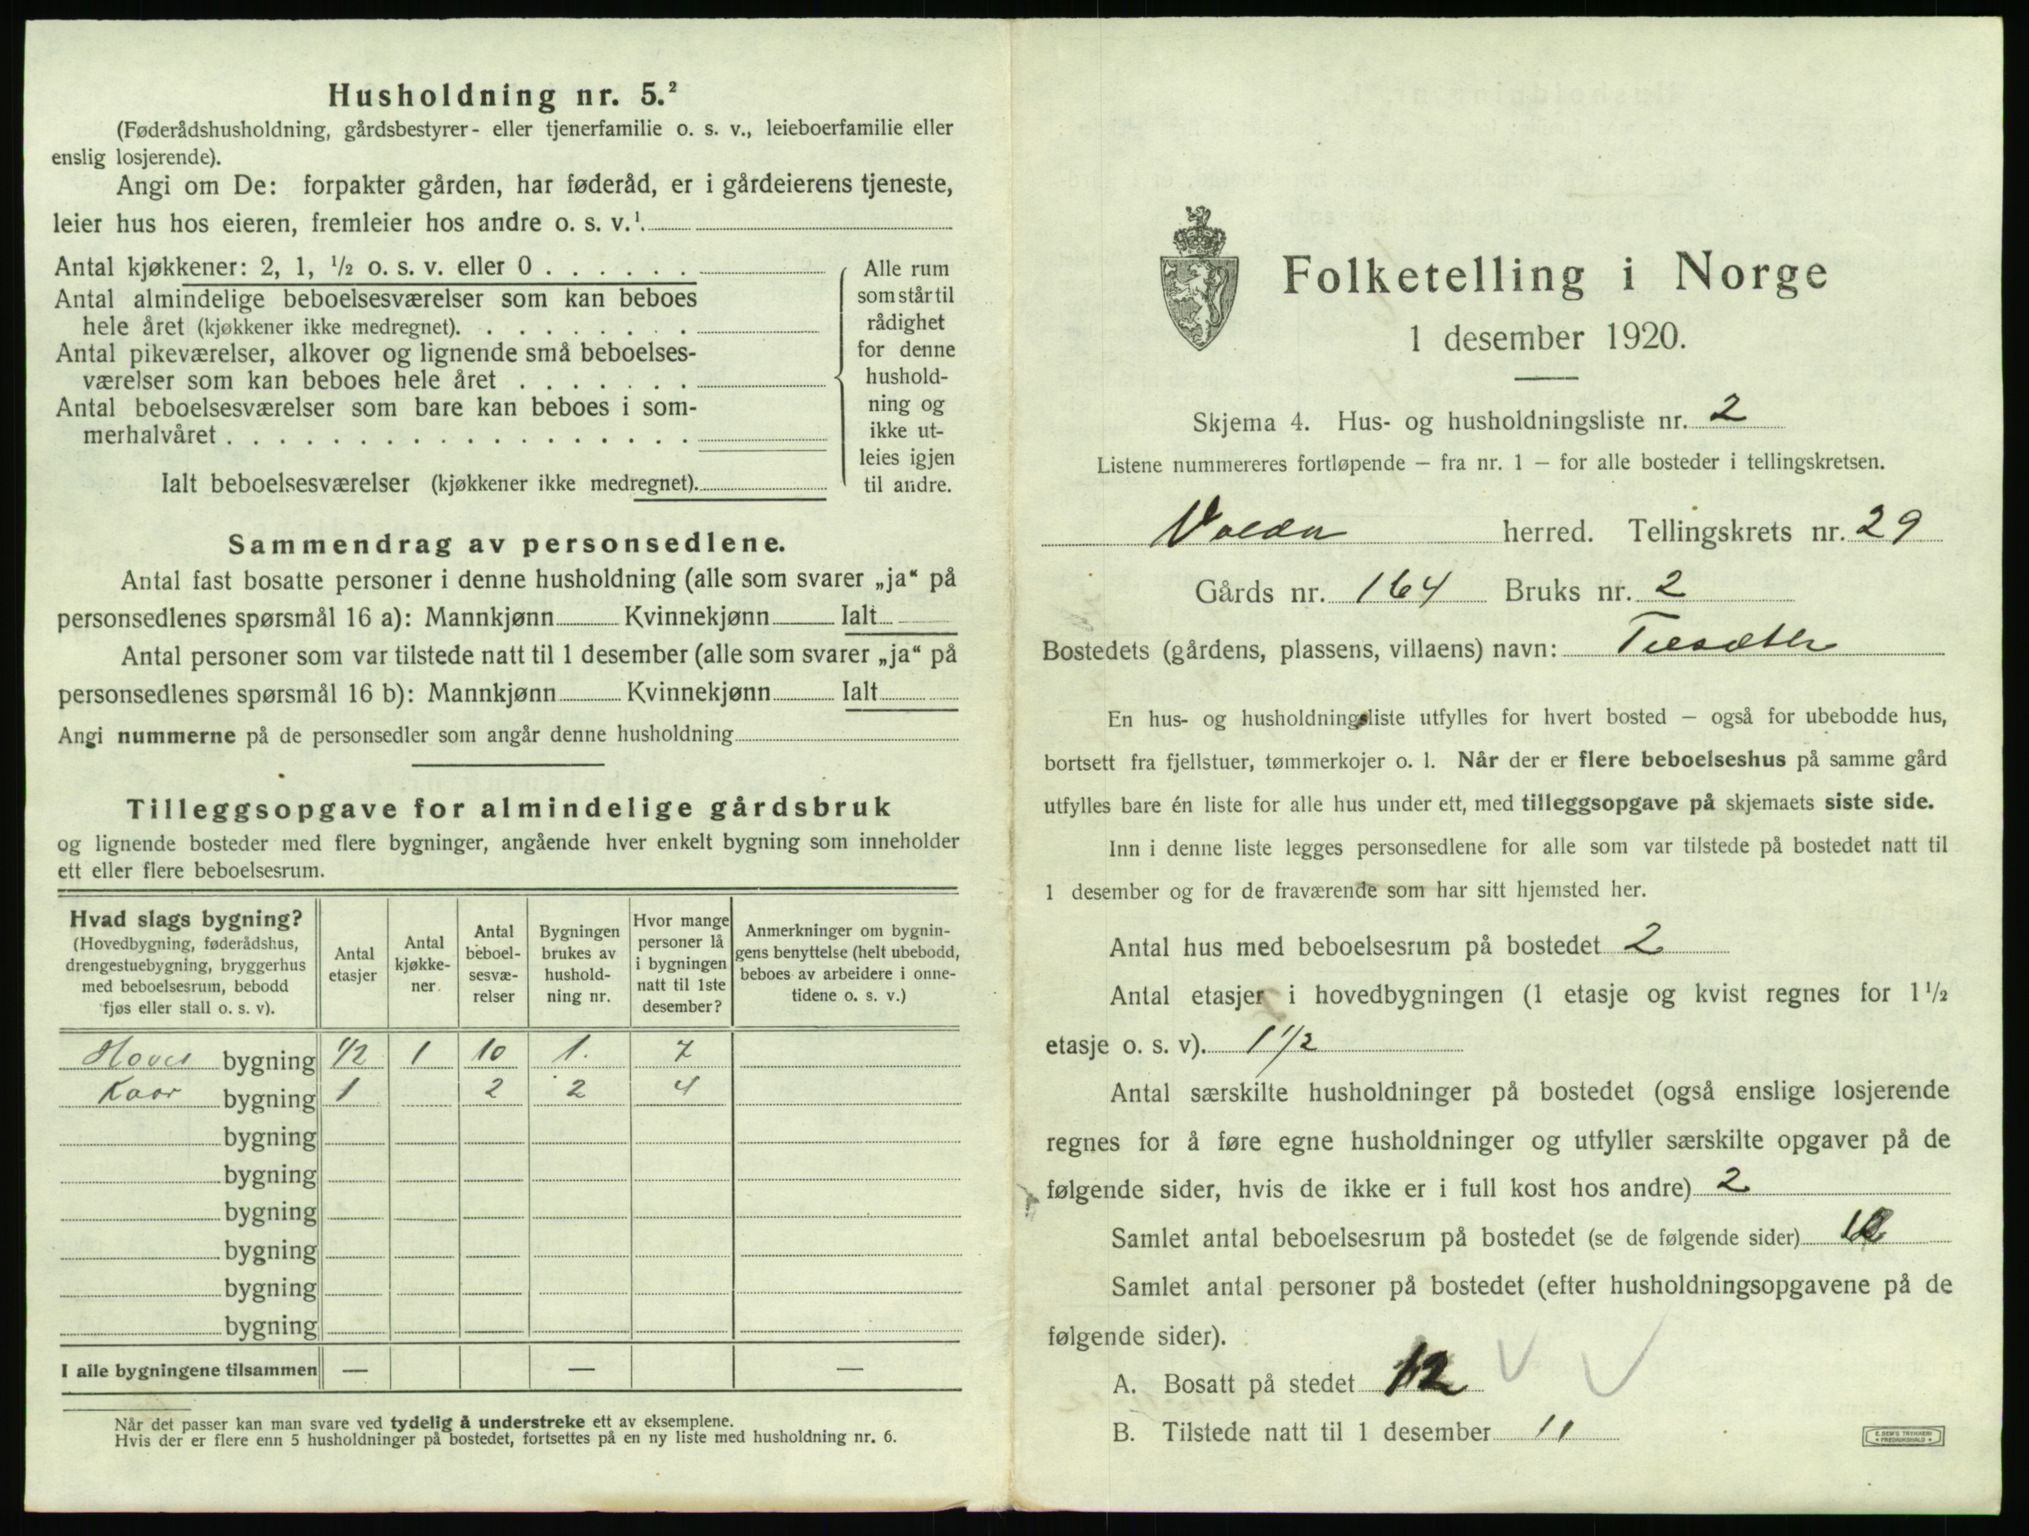 Husholdning nr. 5.²
(Føderådshusholdning, gårdsbestyrer- eller tjenerfamilie o. s. v., leieboerfamilie eller
enslig losjerende).
Angi om De: forpakter gården, har føderåd, er i gårdeierens tjeneste,
leier hus hos eieren, fremleier hos andre o. s. v.¹
Antal kjøkkener: 2, 1, ½ o. s. v. eller 0 . . . . . .
Antal almindelige beboelsesværelser som kan beboes
hele året (kjøkkener ikke medregnet). . . . . . . . .
Antal pikeværelser, alkover og lignende små beboelses-
værelser som kan beboes hele året . . . . . . .
Antal beboelsesværelser som bare kan beboes i som-
merhalvåret . . . . . . . . . . . . . . . . . .
Ialt beboelsesværelser (kjøkkener ikke medregnet).
Alle rum
som står til
rådighet
for denne
hushold-
ning og
ikke ut-
leies igjen
til andre.
Sammendrag av personsedlene.
Antal fast bosatte personer i denne husholdning (alle som svarer „ja“ på
personsedlenes spørsmål 16 a): Mannkjønn Kvinnekjønn Ialt
Antal personer som var tilstede natt til 1 desember (alle som svarer „ja“ på
personsedlenes spørsmål 16 b): Mannkjønn Kvinnekjønn Ialt
Angi nummerne på de personsedler som angår denne husholdning
Tilleggsopgave for almindelige gårdsbruk
og lignende bosteder med flere bygninger, angående hver enkelt bygning som inneholder
ett eller flere beboelsesrum.
Hvad slags bygning?
(Hovedbygning, føderådshus,
drengestuebygning, bryggerhus
med beboelsesrum, bebodd
fjøs eller stall o. s. v).
Antal
etasjer
Antal
kjøkke-
ner
Antal
beboel-
sesvæ-
relser
Bygningen
brukes av
hushold-
ning nr.
Hvor mange
personer lå
i bygningen
natt til 1ste
desember?
Anmerkninger om bygnin-
gens benyttelse (helt ubebodd,
beboes av arbeidere i onne-
tidene o. s. v.)
Hoved bygning 1/2 1 10 1. 7
Kaar bygning 1 2 2 4
bygning
bygning
bygning
bygning
bygning
bygning
I alle bygningene tilsammen — — —
Når det passer kan man svare ved tydelig å understreke ett av eksemplene.
Hvis der er flere enn 5 husholdninger på bostedet, fortsettes på en ny liste med husholdning nr. 6.
Folketelling i Norge
1 desember 1920.
Skjema 4. Hus- og husholdningsliste nr. 2
Listene nummereres fortløpende – fra nr. 1 – for alle bosteder i tellingskretsen.
Volda herred. Tellingskrets nr. 29
Gårds nr. 164 Bruks nr. 2
Bostedets (gårdens, plassens, villaens) navn:
En hus- og husholdningsliste utfylles for hvert bosted – også for ubebodde hus,
bortsett fra fjellstuer, tømmerkojer o. l. Når der er flere beboelseshus på samme gård
utfylles bare én liste for alle hus under ett, med tilleggsopgave på skjemaets siste side.
Inn i denne liste legges personsedlene for alle som var tilstede på bostedet natt til
1 desember og for de fraværende som har sitt hjemsted her.
Antal hus med beboelsesrum på bostedet 2
Antal etasjer i hovedbygningen (1 etasje og kvist regnes for 1½
etasje o. s. v). 1 1/2
Antal særskilte husholdninger på bostedet (også enslige losjerende
regnes for å føre egne husholdninger og utfyller særskilte opgaver på de
følgende sider, hvis de ikke er i full kost hos andre) 2
Samlet antal beboelsesrum på bostedet (se de følgende sider) 12
Samlet antal personer på bostedet (efter husholdningsopgavene på de
følgende sider).
A. Bosatt på stedet 12
B. Tilstede natt til 1 desember 11
E. SEM'S TRYKKERI
FREDRIKSHALD